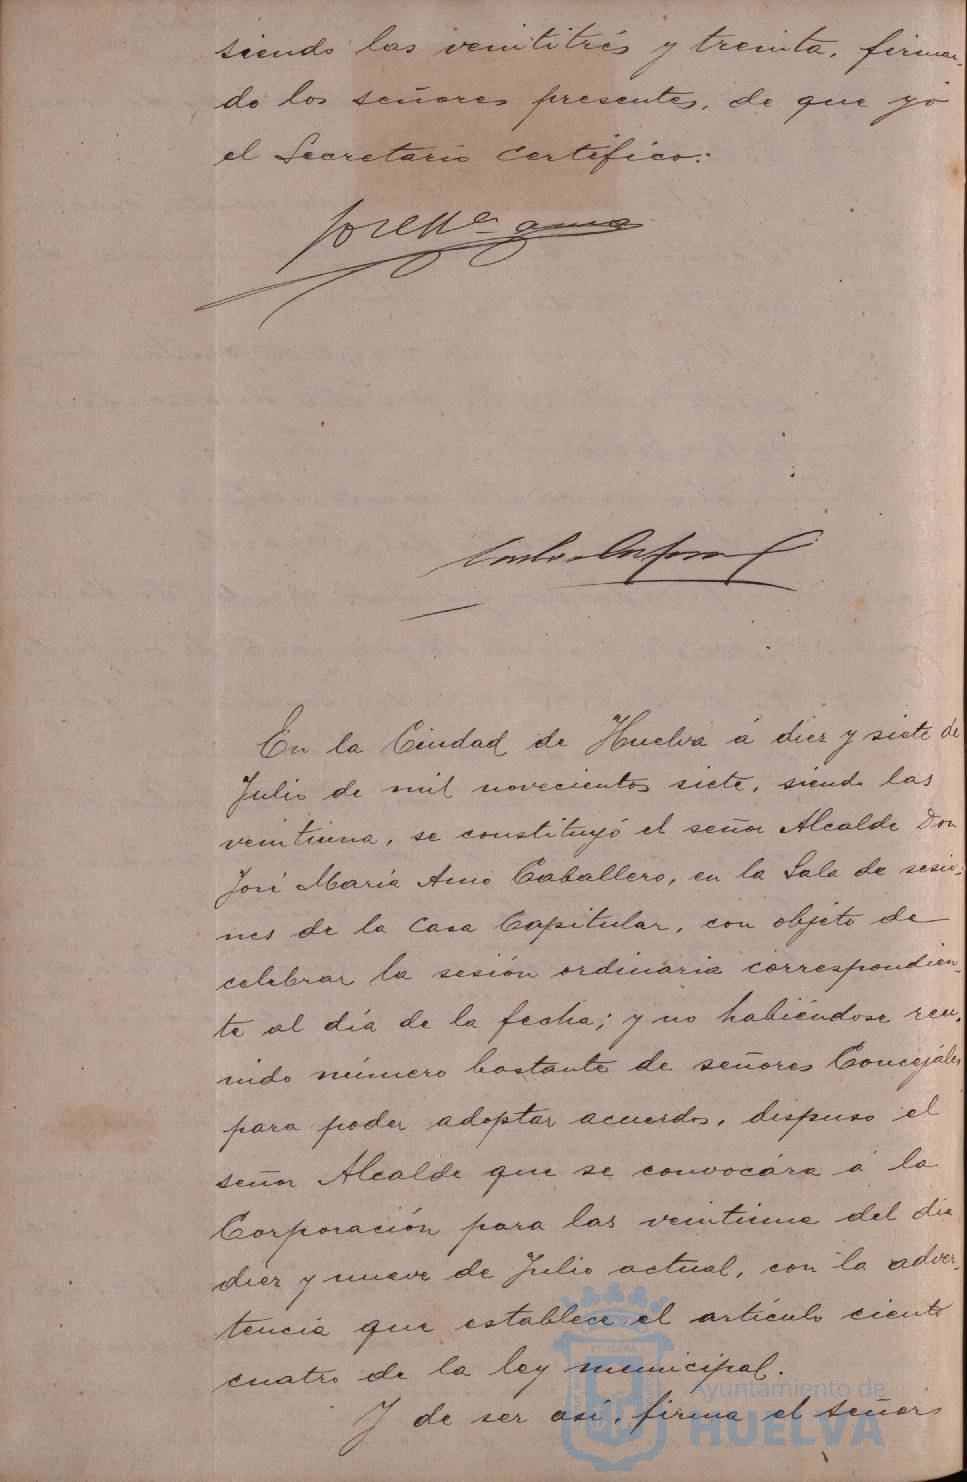 siendo las veintitrés y treinta, firman-
do los señores presentes, de que yo
el Secretario certifico:
José Mª Amo
En la Ciudad de Huelva á diez y siete de
Julio de mil novecientos siete, siendo las
veintiuna, se constituyó el señor Alcalde Don
José María Amo Caballero, en la Sala de sesio-
nes de la Casa Capitular, con objeto de
celebrar la sesión ordinaria correspondien-
te al día de la fecha; y no habiéndose reu-
nido número bastante de señores Concejales
para poder adoptar acuerdos, dispuso el
señor Alcalde que se convocára á la
Corporación para las veintiuna del día
diez y nueve de Julio actual, con la adver-
tencia que establece el artículo ciento
cuatro de la ley municipal.
Y de ser así, firma el señor
Ayuntamiento de
HUELVA